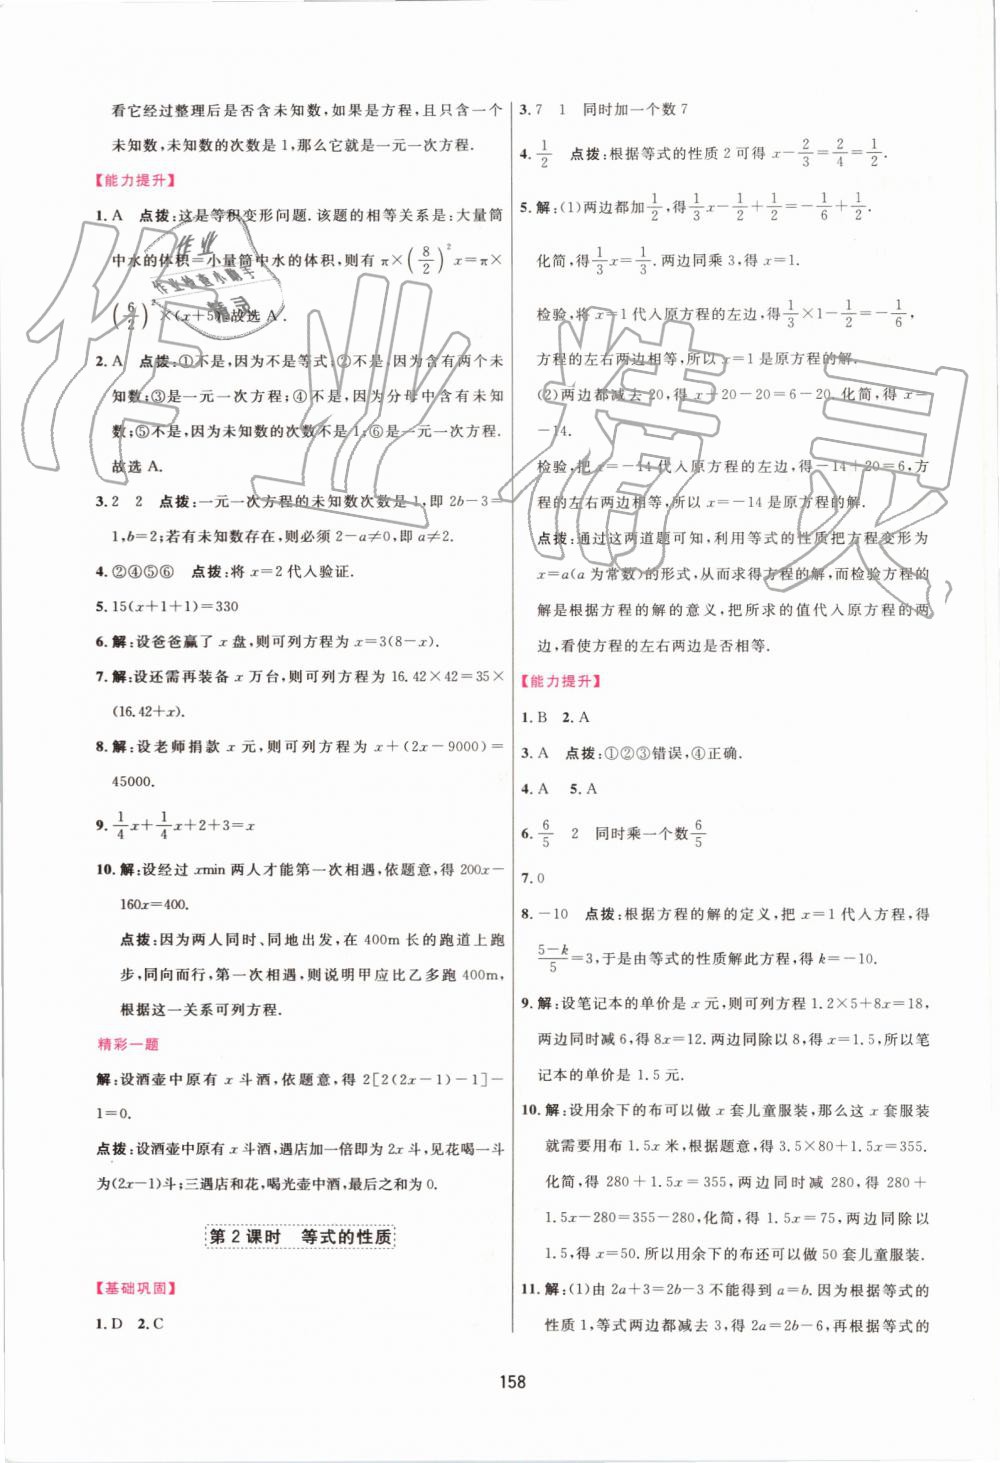 看它经过整理后是否含未知数,如果是方程,且只含一个
未知数,未知数的次数是1,那么它就是一元一次方程.
【能力提升】
1. A 点拨:这是等积变形问题.该题的相等关系是:大量筒
中水的体积=小量筒中水的体积,则有π×(8/2)²x=π×
(6/2)²×(x+5).故选A.
2. A 点拨:①不是,因为不是等式;②不是,因为含有两个未
知数;③是一元一次方程;④不是,因为分母中含有未知
数;⑤不是,因为未知数的次数不是1;⑥是一元一次方程.
故选A.
3. 2 2 点拨:一元一次方程的未知数次数是1,即2b-3=
1,b=2;若有未知数存在,则必须2-a≠0,即a≠2.
4. ②④⑤⑥ 点拨:将x=2代入验证.
5. 15(x+1+1)=330
6. 解:设爸爸赢了x盘,则可列方程为x=3(8-x).
7. 解:设还需再装备x万台,则可列方程为16.42×42=35×
(16.42+x).
8. 解:设老师捐款x元,则可列方程为x+(2x-9000)=
45000.
9. 1/4x+1/4x+2+3=x
10. 解:设经过xmin两人才能第一次相遇,依题意,得200x-
160x=400.
点拨:因为两人同时、同地出发,在400m长的跑道上跑
步,同向而行,第一次相遇,则说明甲应比乙多跑400m,
根据这一关系可列方程.
精彩一题
解:设酒壶中原有x斗酒,依题意,得2[2(2x-1)-1]-
1=0.
点拨:设酒壶中原有x斗酒,遇店加一倍即为2x,见花喝一斗
为(2x-1)斗;三遇店和花,喝光壶中酒,最后之和为0.
第2课时 等式的性质
【基础巩固】
1. D 2. C
3. 7 1 同时加一个数7
4. 1/2 点拨:根据等式的性质2可得x-2/3=2/4=1/2.
5. 解:(1)两边都加1/2,得1/3x-1/2+1/2=-1/6+1/2.
化简,得1/3x=1/3.两边同乘3,得x=1.
检验,将x=1代入原方程的左边,得1/3×1-1/2=-1/6,
方程的左右两边相等,所以x=1是原方程的解.
(2)两边都减去20,得x+20-20=6-20.化简,得x=
-14.
检验,把x=-14代入原方程的左边,得-14+20=6,方
程的左右两边相等,所以x=-14是原方程的解.
点拨:通过这两道题可知,利用等式的性质把方程变形为
x=a(a为常数)的形式,从而求得方程的解,而检验方程的
解是根据方程的解的意义,把所求的值代入原方程的两
边,看使方程的左右两边是否相等.
【能力提升】
1. B 2. A
3. A 点拨:①②③错误,④正确.
4. A 5. A
6. 6/5 2 同时乘一个数6/5
7. 0
8. -10 点拨:根据方程的解的定义,把x=1代入方程,得
(5-k)/5=3,于是由等式的性质解此方程,得k=-10.
9. 解:设笔记本的单价是x元,则可列方程1.2×5+8x=18,
两边同时减6,得8x=12.两边同除以8,得x=1.5,所以笔
记本的单价是1.5元.
10. 解:设用余下的布可以做x套儿童服装,那么这x套服装
就需要用布1.5x米,根据题意,得3.5×80+1.5x=355.
化简,得280+1.5x=355,两边同时减280,得280+
1.5x-280=355-280,化简,得1.5x=75,两边同除以
1.5,得x=50.所以用余下的布还可以做50套儿童服装.
11. 解:(1)由2a+3=2b-3不能得到a=b.因为根据等式的
性质1,等式两边都减去3,得2a=2b-6,再根据等式的
158
作业精灵
作业
作业检查小助手
精灵